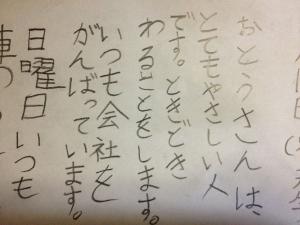 おとうさんは、
とてもやさしい人
です。ときどき
わることをします。
いつも会社を
がんばっています。
日曜日いつも